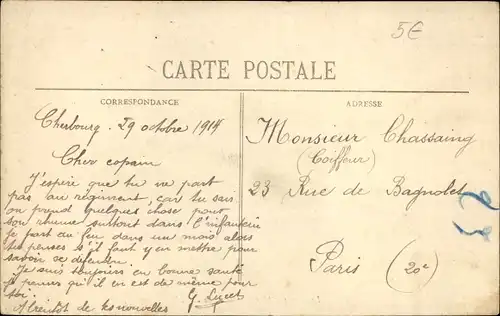 5€
CARTE POSTALE
CORRESPONDANCE
ADRESSE
Cherbourg. 29 octobre 1914
Cher copain
J'espère que tu ne part
pas au régiment, car tu sais
on prend quelques chose pour
son rhume surtout dans l'infanterie
je part au feu dans un mois alors
tu penses s'il faut y en mettre pour
savoir se défendre.
Je suis toujours en bonne santé
je penses qu'il en est de même pour
toi.
A bientôt de tes nouvelles
G.
Monsieur Chassaing
(Coiffeur)
23 Rue de Bagnolet
Paris (20e)